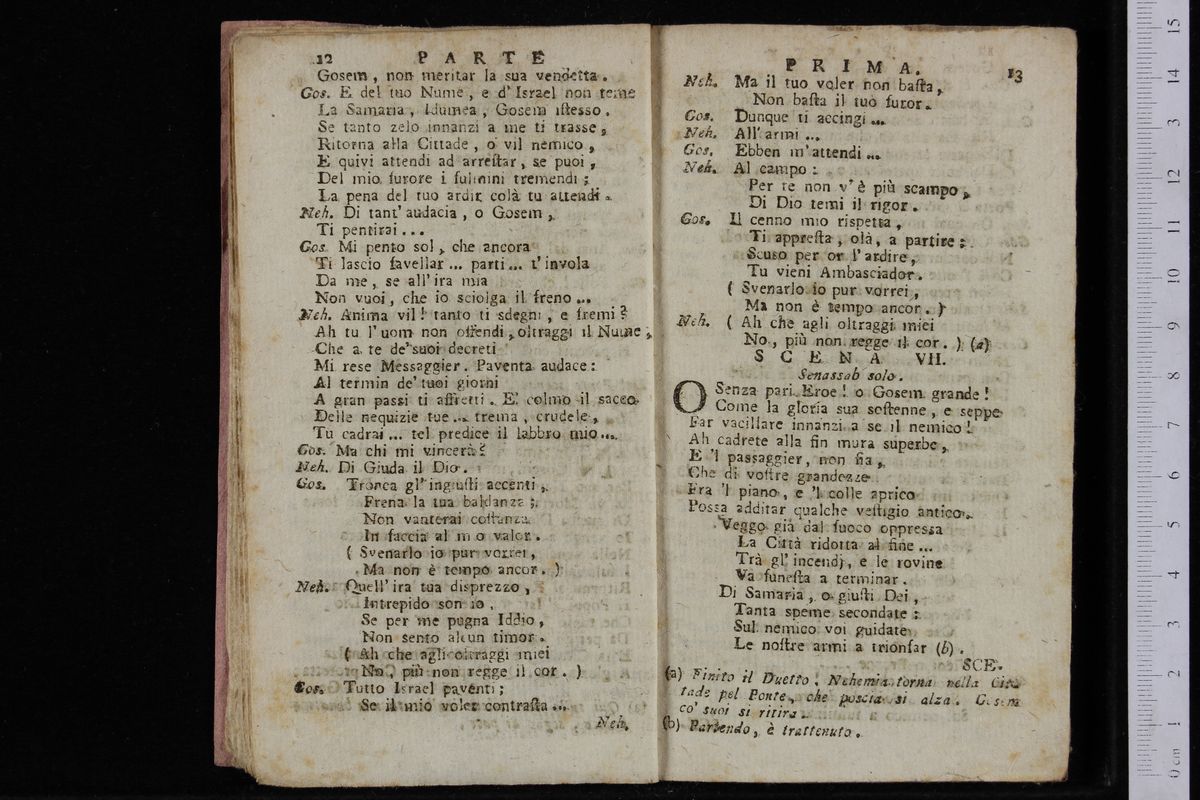 12 PARTE
Gosem, non meritar la sua vendetta.
Gos. E del tuo Nume, e d'Israel non teme
La Samaria, Idumea, Gosem iſteſſo.
Se tanto zelo innanzi a me ti trasse,
Ritorna alla Cittade, o vil nemico,
E quivi attendi ad arreſtar, se puoi,
Del mio furore i fulmini tremendi;
La pena del tuo ardir colà tu attendi.
Neh. Di tant' audacia, o Gosem,
Ti pentirai...
Gos. Mi pento sol, che ancora
Ti lascio favellar... parti... t'invola
Da me, se all' ira mia
Non vuoi, che io sciolga il freno...
Neh. Anima vil! tanto ti sdegni, e fremi?
Ah tu l'uom non offendi, oltraggi il Nume,
Che a te de' suoi decreti
Mi rese Messaggier. Paventa audace:
Al termin de' tuoi giorni
A gran passi ti affretti. E' colmo il sacco
Delle nequizie tue... trema, crudele,
Tu cadrai... tel predice il labbro mio...
Gos. Ma chi mi vincerà?
Neh. Di Giuda il Dio.
Gos. Tronca gl' ingiuſti accenti,
Frena la tua baldanza;
Non vanterai coſtanza
In faccia al mio valor.
( Svenarlo io pur vorrei,
Ma non è tempo ancor. )
Neh. Quell' ira tua disprezzo,
Intrepido son io,
Se per me pugna Iddio,
Non sento alcun timor.
( Ah che agli oltraggi miei
No, più non regge il cor. )
Gos. Tutto Israel paventi;
Se il mio voler contraſta...
Neh.
PRIMA. 13
Neh. Ma il tuo voler non baſta,
Non baſta il tuo furor.
Gos. Dunque ti accingi...
Neh. All' armi...
Gos. Ebben m'attendi...
Neh. Al campo:
Per te non v' è più scampo,
Di Dio temi il rigor.
Gos. Il cenno mio rispetta,
Ti appreſta, olà, a partire;
Scuso per or l'ardire,
Tu vieni Ambasciador.
( Svenarlo io pur vorrei,
Ma non è tempo ancor. )
Neh. ( Ah che agli oltraggi miei
No, più non regge il cor. ) (a)
SCENA VII.
Senassab solo.
O Senza pari Eroe! o Gosem grande!
Come la gloria sua soſtenne, e seppe
Far vacillare innanzi a se il nemico!
Ah cadrete alla fin mura superbe,
E 'l passaggier, non fia,
Che di voſtre grandezze
Fra 'l piano, e 'l colle aprico
Possa additar qualche veſtigio antico.
Veggo già dal fuoco oppressa
La Città ridotta al fine...
Trà gl' incendj, e le rovine
Va funeſta a terminar.
Di Samaria, o giuſti Dei,
Tanta speme secondate;
Sul nemico voi guidate
Le noſtre armi a trionfar (b).
SCE.
(a) Finito il Duetto, Nehemia torna nella Cit-
tade pel Ponte, che poscia si alza. Gosem
co' suoi si ritira.
(b) Partendo, è trattenuto.
15
14
13
12
11
10
9
8
7
6
5
4
3
2
1
0 cm